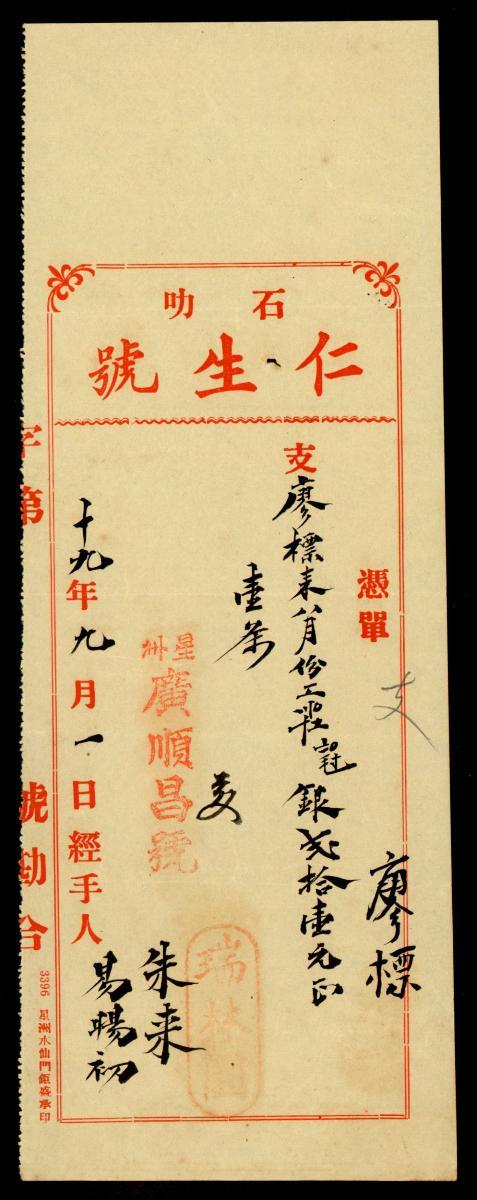 石叻
仁生號
憑單
支
廖標
支廖標來八月份工 銀弍拾壹元正
壹条
星洲
廣順昌號
瑞林
十九年九月一日經手人
朱来
易暢初
字第 號勘合
3396 星洲水仙門鉅盛承印